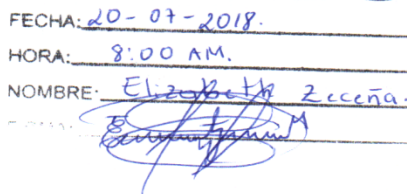 FECHA: 20-07-2018.
HORA: 8:00 AM.
NOMBRE: Elizabeth Zeceña.